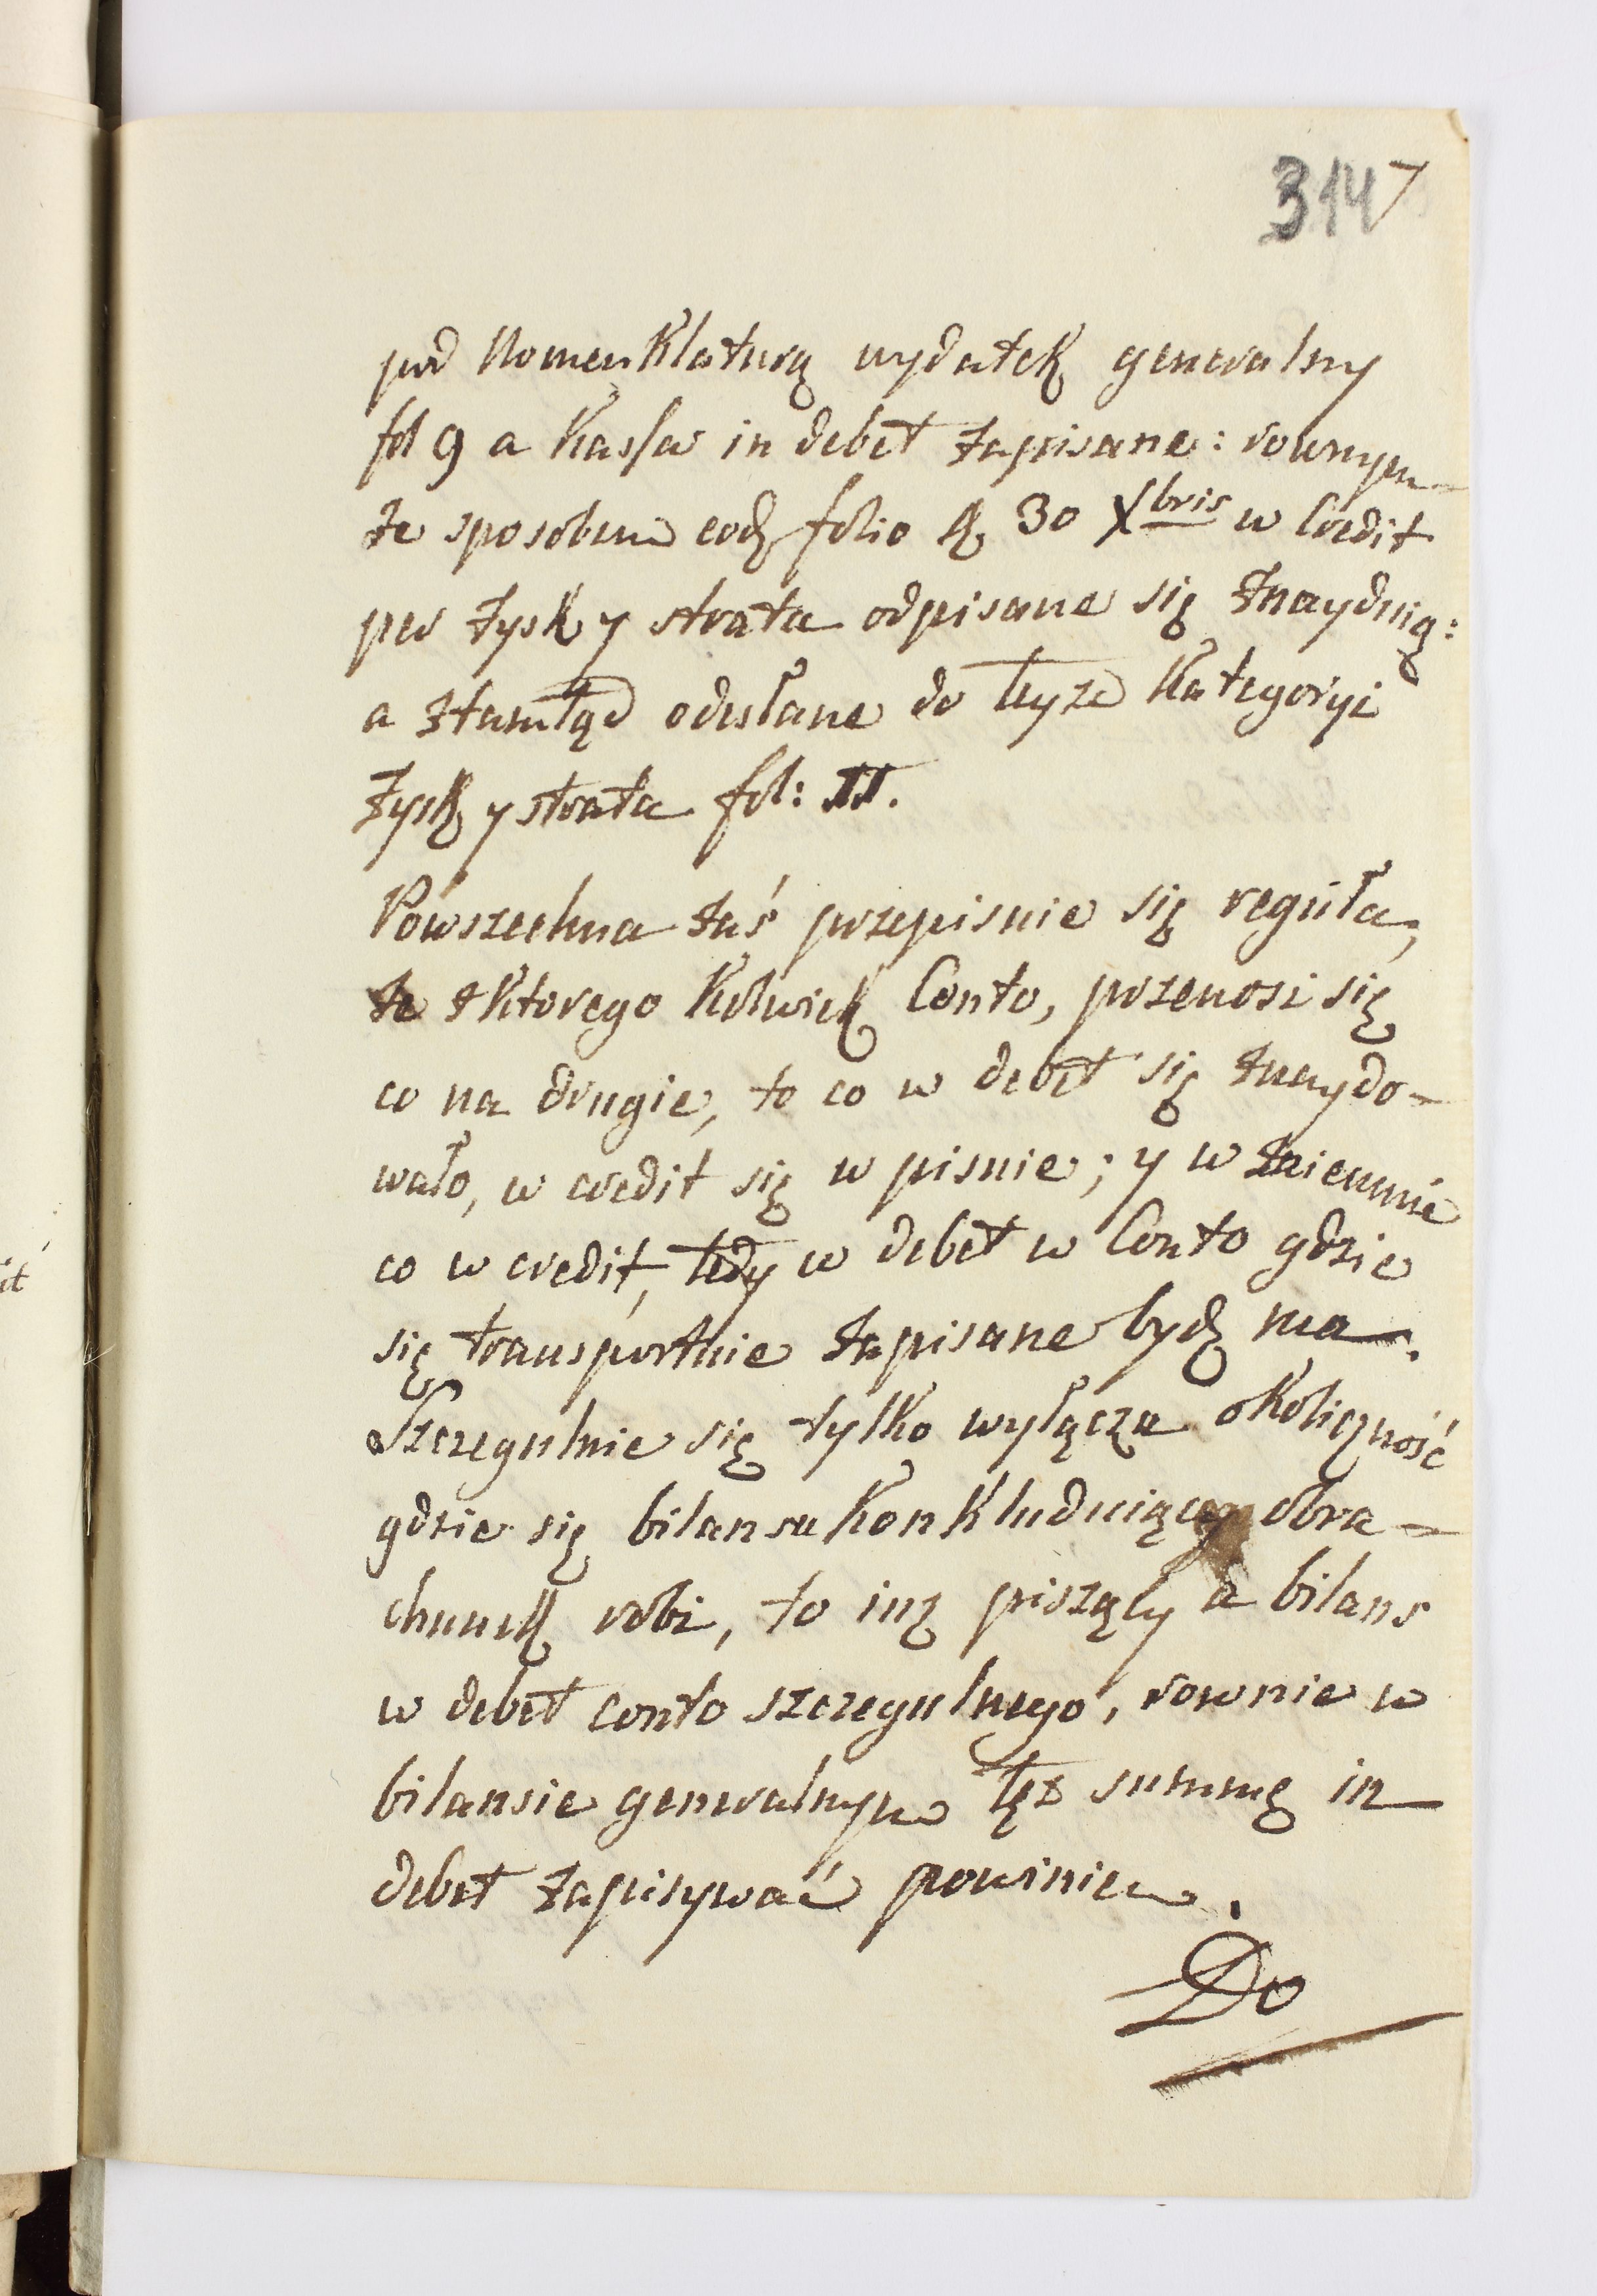 3147
pod Nomenklaturą wydatek generalny
fol 9 a Kassa in debet zapisane: rownym
że sposobem eod folio d 30 Xbris w Credit
per zysk y strata odpisane się znayduią:
a ztamtąd odesłane do teyże Kategoryi
zysk y strata fol: 11.
Powszechna zaś przepisuie się reguła,
że z ktorego kolwiek Conto, przenosi się
co na drugie, to co w debet się znaydo-
wało, w credit się w pisuie; y w zaiemnie
co w credit, tedy w debet w Conto gdzie
się transportuie zapisane bydź ma.
Szczegulnie się tylko wyłącza okoliczność
gdzie się bilansu konkluduiący obra-
chunek robi, to iuż piszący a bilans
w debet conto szczegulnego, rownie w
bilansie generalnym tęż summę in
debet zapisywać powinien.
Do
it